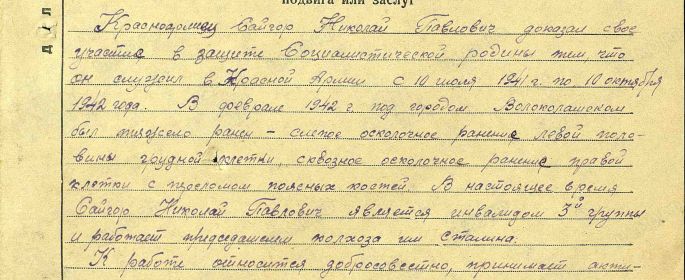 подвига или заслуг
Красноармеец Сайгор Николай Павлович доказал свое
участие в защите Социалистической родины тем что
он служил в Красной Армии с 10 июля 1941 г. по 10 октября
1942 года. В феврале 1942 г. под городом Волоколамском
был тяжело ранен – слепое осколочное ранение левой поло-
вины грудной клетки, сквозное осколочное ранение правой
клетки с переломом поясных костей. В настоящее время
Сайгор Николай Павлович является инвалидом 3й группы
и работает председателем колхоза им Сталина.
К работе относится добросовестно, принимает акти-